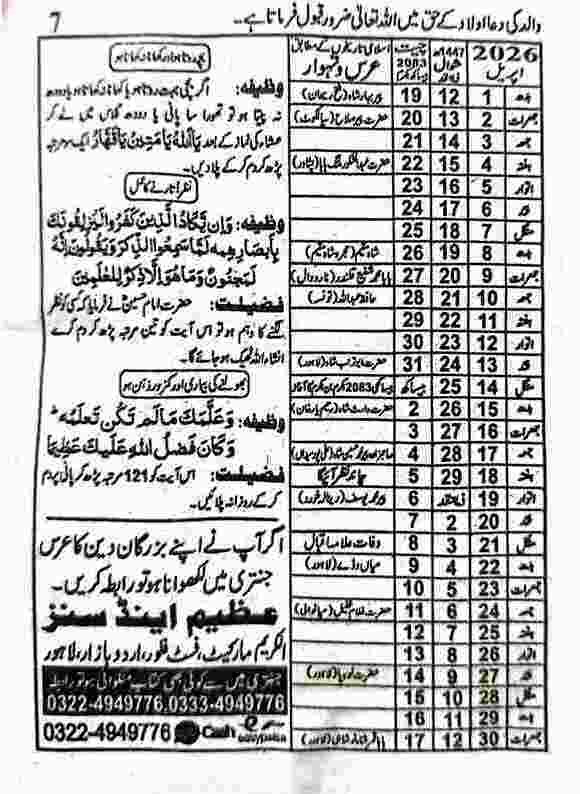 والد کی دعا اولاد کے حق میں اللہ تعالیٰ ضرور قبول فرماتا ہے۔۔
7
بچہ روتا ہو اور کھانا نہ کھاتا ہو
وظیفہ: اگر بچہ بہت روتا ہو یا کھانا نہ کھاتا ہو یا دودھ
نہ پیتا ہو تو تھوڑا سا پانی یا دودھ گلاس میں لے کر
عشاء کی نماز کے بعد یَااَللّٰهُ یَامَتِیْنُ یَاقَهَّارُ ایک سو مرتبہ
پڑھ کر دم کر کے پلا دیں۔
نظر اتارنے کا عمل
وظیفہ: وَاِنْ یَّكَادُ الَّذِیْنَ كَفَرُوْا لَیُزْلِقُوْنَكَ
بِاَبْصَارِهِمْ لَمَّا سَمِعُوا الذِّكْرَ وَیَقُوْلُوْنَ اِنَّهٗ
لَمَجْنُوْنٌ وَمَا هُوَ اِلَّا ذِكْرٌ لِّلْعٰلَمِیْنَ
فضیلت: حضرت امام حسینؓ نے فرمایا کہ کسی کو نظر
لگنے کا وہم ہو تو اس آیت کو تین مرتبہ پڑھ کر دم کرے
انشاء اللہ ٹھیک ہو جائے گا۔
بھولنے کی بیماری اور کمزور ذہن ہو
وظیفہ: وَعَلَّمَكَ مَالَمْ تَكُنْ تَعْلَمُ ط
وَكَانَ فَضْلُ اللّٰهِ عَلَیْكَ عَظِیْمًا
فضیلت: اس آیت کو 121 مرتبہ پڑھ کر پانی پر دم
کر کے روزانہ پلائیں۔
اگر آپ نے اپنے بزرگان دین کا عرس
جنتری میں لکھوانا ہو تو رابطہ کریں۔
عظیم اینڈ سنز
الکریم مارکیٹ، فسٹ فلور، اردو بازار، لاہور
جنتری میں سے کوئی بھی کتاب منگوانی ہو تو رابطہ
0322-4949776, 0333-4949776
0322-4949776 Cash easypaisa
2026 اپریل 1447ھ شوال ذیقعد چیت 2083 بیساکھ اسلامی تاریخوں کے مطابق عرس و تہوار
بدھ 1 12 19
جمعرات 2 13 20
جمعہ 3 14 21
ہفتہ 4 15 22
اتوار 5 16 23
پیر 6 17 24
منگل 7 18 25
بدھ 8 19 26
جمعرات 9 20 27
جمعہ 10 21 28 حافظ عبداللہ (تونسہ)
ہفتہ 11 22 29
اتوار 12 23 30
پیر 13 24 31
منگل 14 25 بیساکھ
بدھ 15 26 2
جمعرات 16 27 3
جمعہ 17 28 4
ہفتہ 18 29 5 چاند نظر آئیگا
اتوار 19 ذیقعد 6
پیر 20 2 7
منگل 21 3 8 وفات علامہ اقبال
بدھ 22 4 9 میاں وڈے (لاہور)
جمعرات 23 5 10
جمعہ 24 6 11
ہفتہ 25 7 12
اتوار 26 8 13
پیر 27 9 14
منگل 28 10 15
بدھ 29 11 16
جمعرات 30 12 17